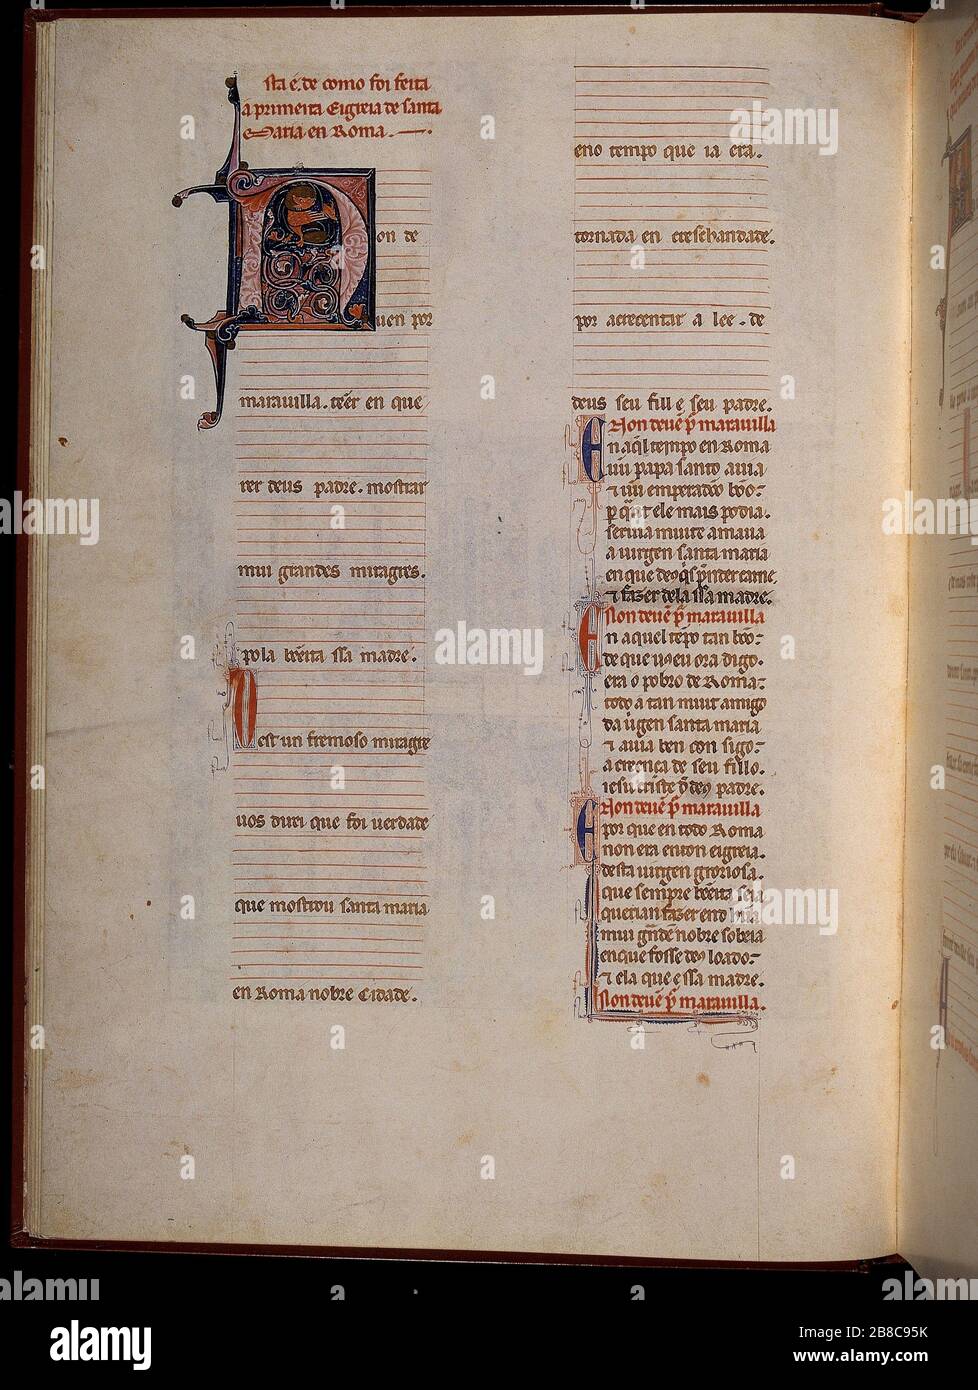 sta é. de como foi feita
á primeira Eigreia de santa
Maria en Roma.
Non de
uen por
marauilla. tẽer en que
rer deus padre. mostrar
mui grandes miragres.
pola bẽeita ssa madre.
Dest un fremoso miragre
uos direi que foi uerdade
que mostrou santa maria
en Roma nobre Cidade.
eno tempo que ia era.
tornada en crischandade.
por acrecentar a lee. de
deus seu fill e seu padre.
Non deuẽ p̃ marauilla
En aq̃l tempo en Roma
uũ papa santo auia
⁊ uũ emperadór bõo.
per q̃nt ele mais podia.
seruia muit e amaua
a uirgen santa maria
en que de9 q̃s p̃nder carne
⁊ fazer dela ssa madre.
Non deuẽ p̃ marauilla
En aquel tẽpo tan bõo.
de que u9 eu ora digo.
era o pobro de Roma.
todo a tan muit amigo
da uirgen santa maria
⁊ auia ben con sigo.
a creença de seu fillo.
iesu criste q̃ de9 padre.
Non deuẽ p̃ marauilla
E por que en todo Roma
non era enton eigreia.
desta uirgen groriosa.
que sempre bẽeita seia
querian fazer end hũa
mui grãde nobre sobeia
en que fosse de9 loado.
⁊ ela que e ssa madre.
Non deuẽ p̃ marauilla.
alamy
Image ID: 2B8C95K
www.alamy.com